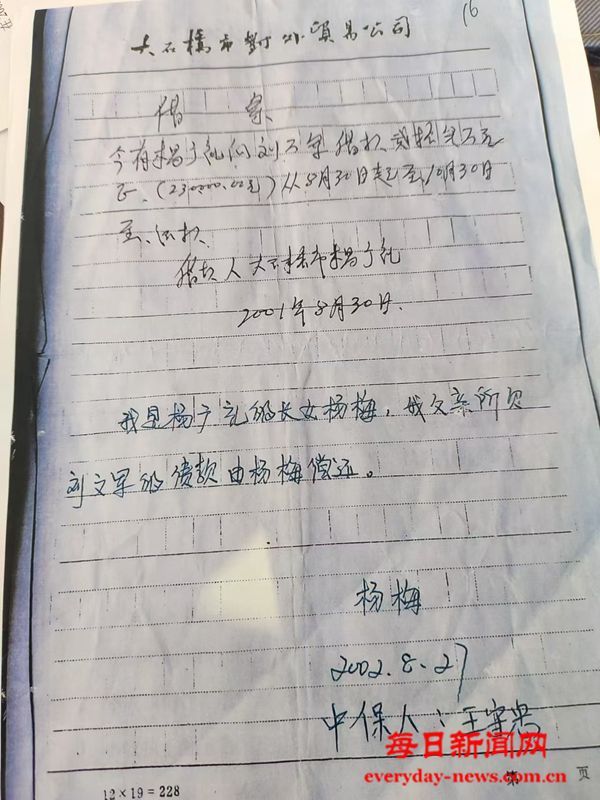 16
大石桥市對外貿易公司
借条
今有杨广礼向刘文军借款贰拾叁万元
正.(230000.00元)从8月30日起至10月30日
至.还款.
借款人大石桥市杨广礼
2001年8月30日.
我是杨广礼的长女杨梅,我父亲所欠
刘文军的债款由杨梅偿还。
杨梅
2002.8.27
中保人:王宝忠
每日新闻网
everyday-news.com.cn
第 页
12×19=228